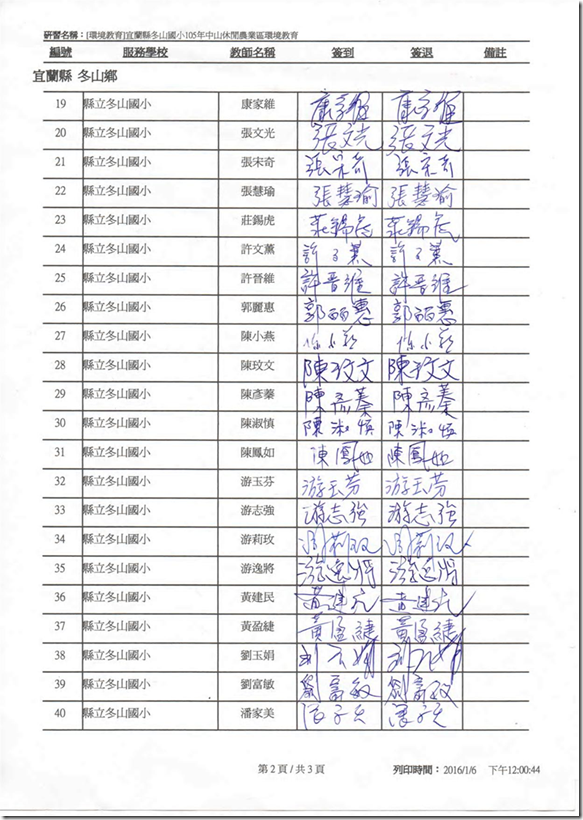 研習名稱：[環境教育]宜蘭縣冬山國小105年中山休閒農業區環境教育
編號 服務學校 教師名稱 簽到 簽退 備註
宜蘭縣 冬山鄉
19 縣立冬山國小 康家維 康家維 康家維
20 縣立冬山國小 張文光 張文光 張文光
21 縣立冬山國小 張宋奇 張宋奇 張宋奇
22 縣立冬山國小 張慧瑜 張慧瑜 張慧瑜
23 縣立冬山國小 莊錫虎 莊錫虎 莊錫虎
24 縣立冬山國小 許文薰 許文薰 許文薰
25 縣立冬山國小 許晉維 許晉維 許晉維
26 縣立冬山國小 郭麗惠 郭麗惠 郭麗惠
27 縣立冬山國小 陳小燕 陳小燕 陳小燕
28 縣立冬山國小 陳玟文 陳玟文 陳玟文
29 縣立冬山國小 陳彥蓁 陳彥蓁 陳彥蓁
30 縣立冬山國小 陳淑慎 陳淑慎 陳淑慎
31 縣立冬山國小 陳鳳如 陳鳳如 陳鳳如
32 縣立冬山國小 游玉芬 游玉芬 游玉芬
33 縣立冬山國小 游志強 游志強 游志強
34 縣立冬山國小 游莉玫 游莉玫 游莉玫
35 縣立冬山國小 游逸將 游逸將 游逸將
36 縣立冬山國小 黃建民
37 縣立冬山國小 黃盈緁 黃盈緁 黃盈緁
38 縣立冬山國小 劉玉娟
39 縣立冬山國小 劉富敏 劉富敏 劉富敏
40 縣立冬山國小 潘家美
第 2 頁 / 共 3 頁 列印時間： 2016/1/6 下午12:00:44